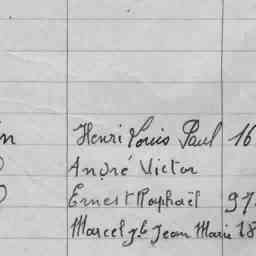 n Henri Louis Paul 16
André Victor
Ernest Raphaël 97
Marcel Jean Marie 18